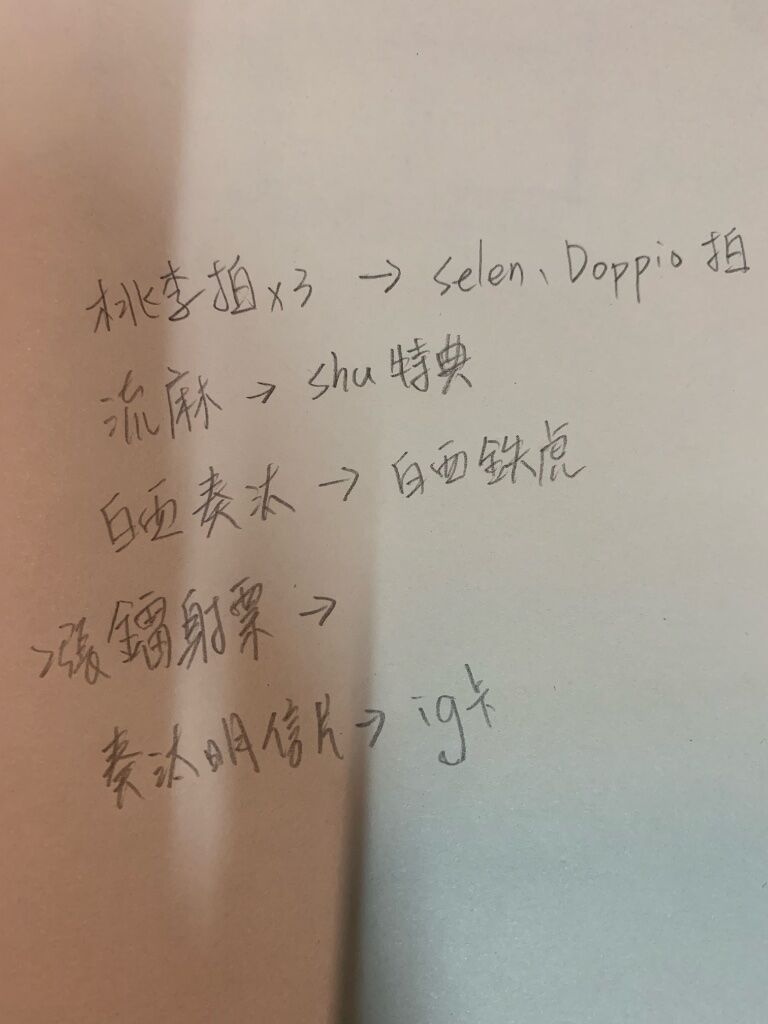 桃李拍x3 → selen、Doppio 拍
流麻 → shu 特典
白西奏汰 → 白西鉄虎
2張鐳射票 →
奏汰明信片 → ig卡